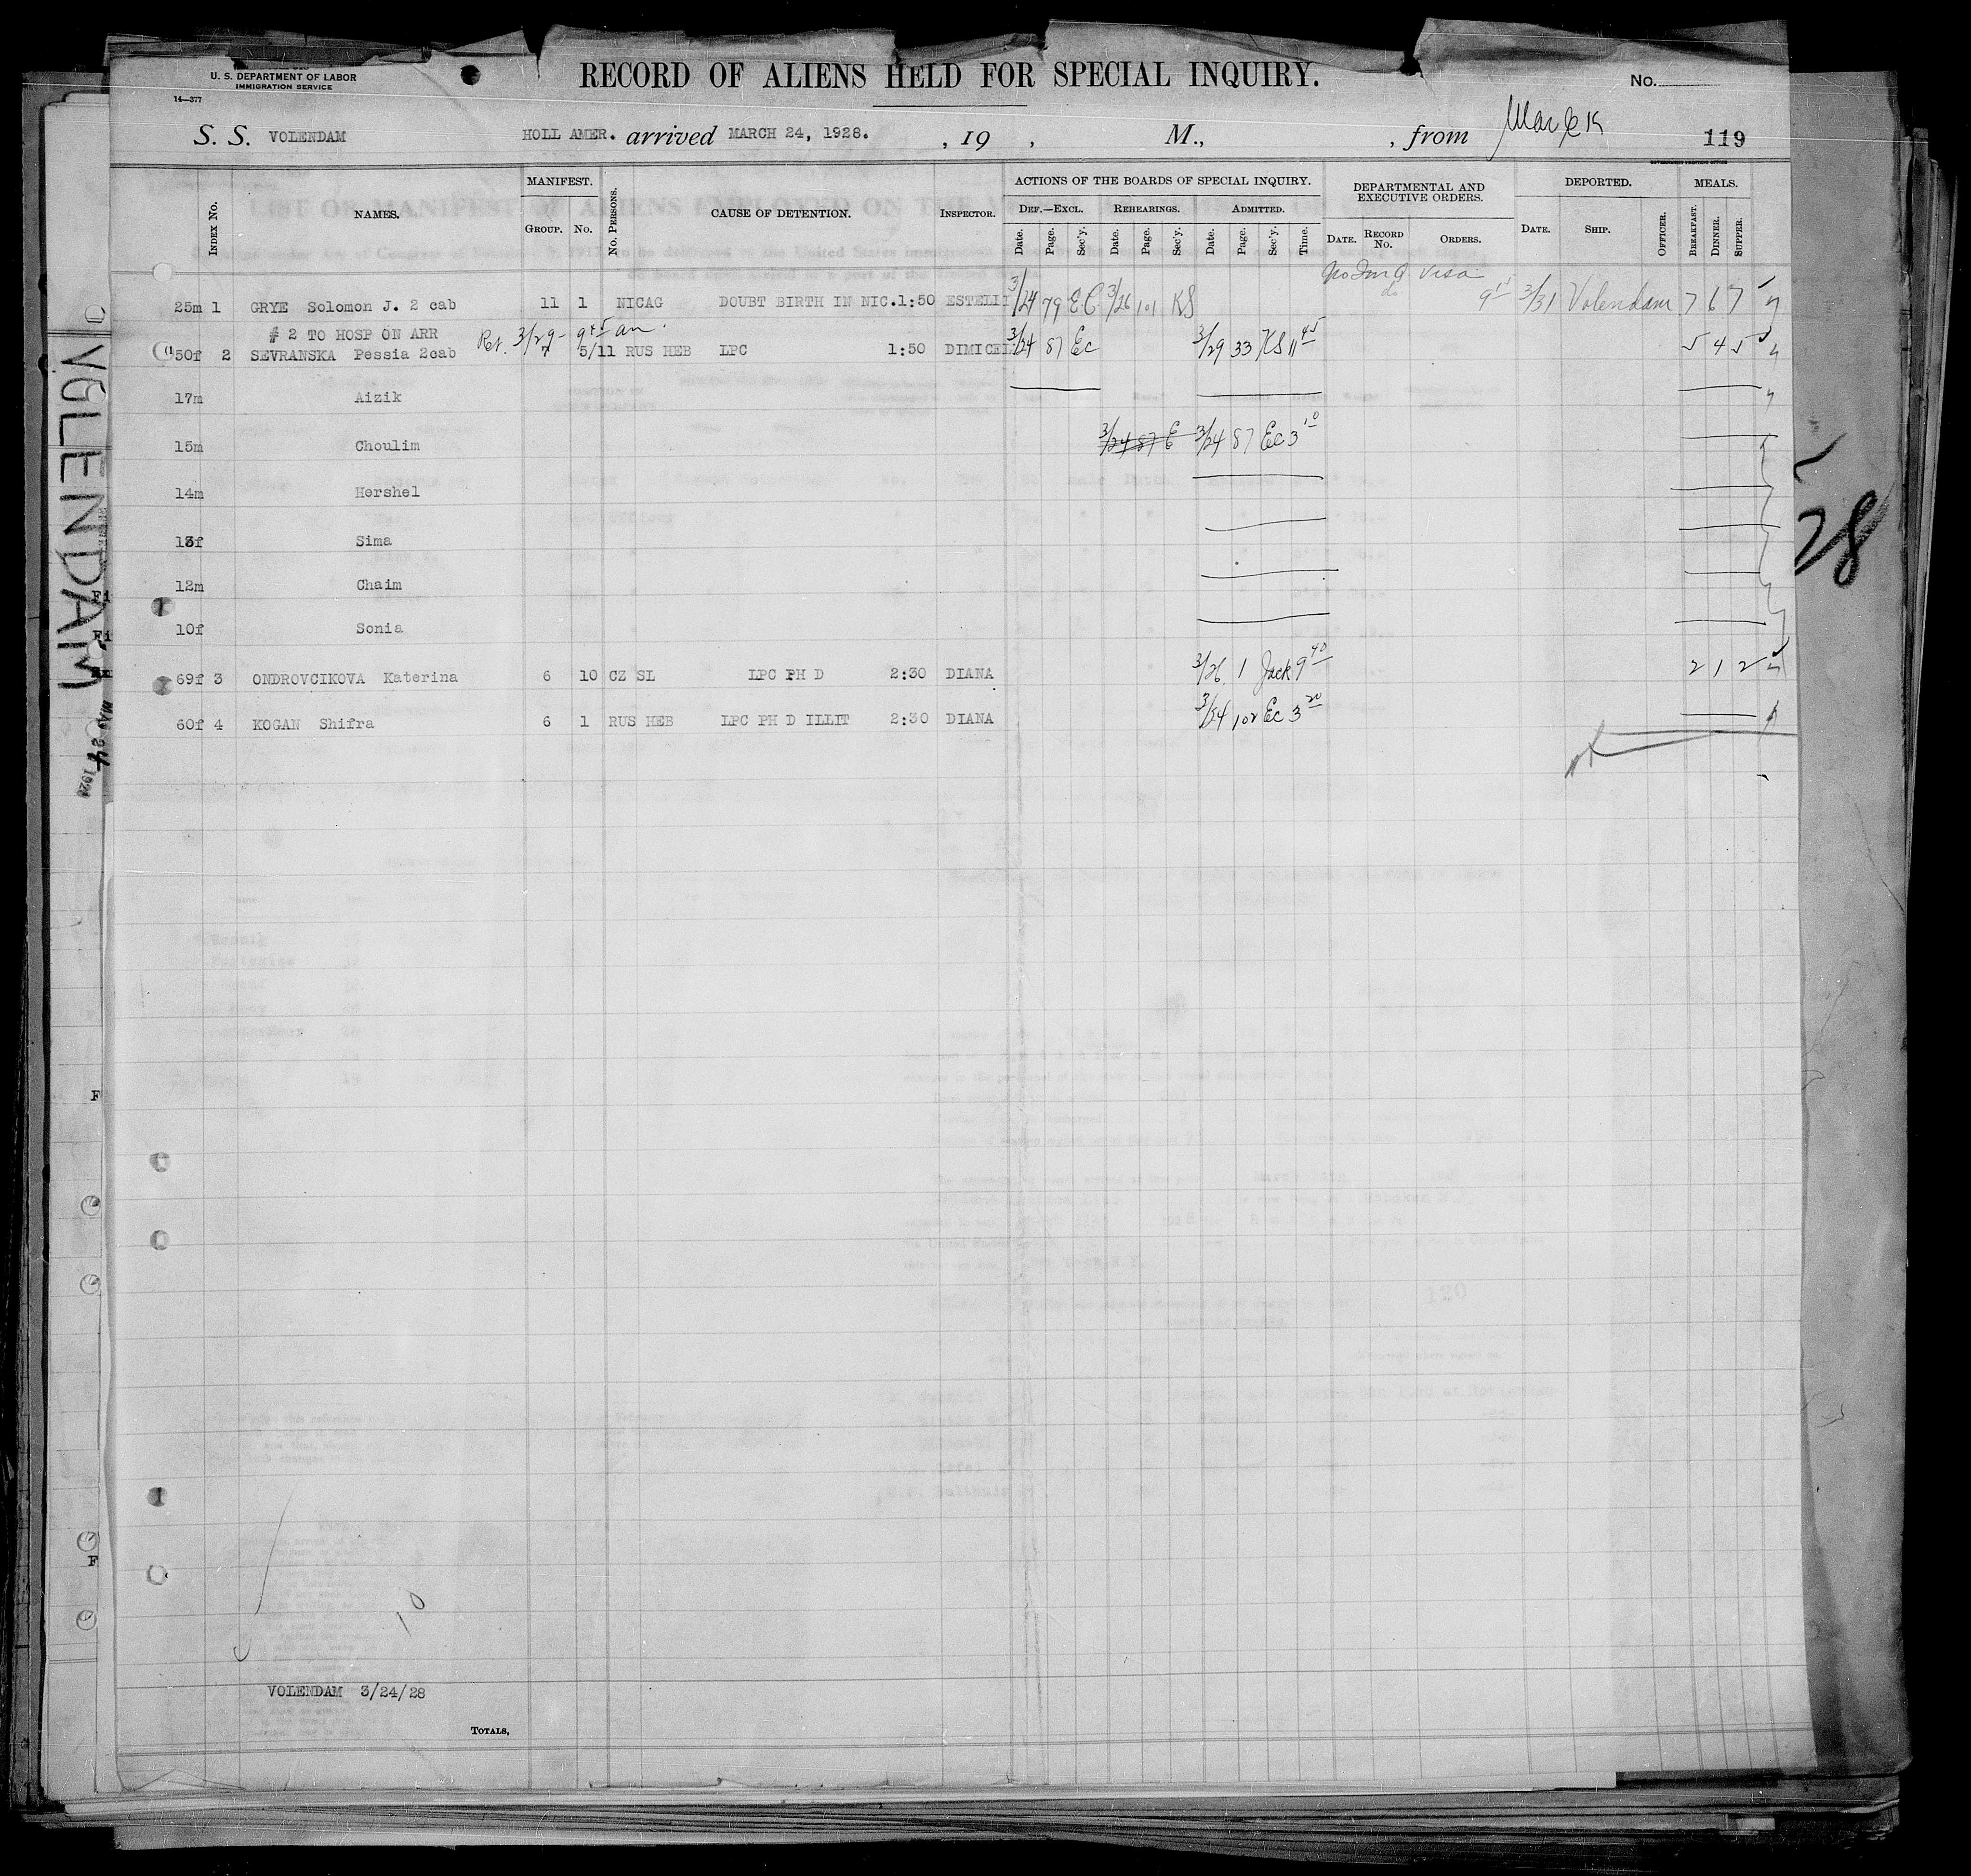 U. S. DEPARTMENT OF LABOR
IMMIGRATION SERVICE
14—377
RECORD OF ALIENS HELD FOR SPECIAL INQUIRY.
No.
S. S. VOLENDAM HOLL AMER. arrived MARCH 24, 1928. , 19 , M., , from 119
GOVERNMENT PRINTING OFFICE
Index No. NAMES. MANIFEST. Group. No. No. Persons. CAUSE OF DETENTION. Inspector. ACTIONS OF THE BOARDS OF SPECIAL INQUIRY. DEPARTMENTAL AND EXECUTIVE ORDERS. DEPORTED. MEALS.
Def.—Excl. Rehearings. Admitted.
Date. Page. Sec'y. Date. Page. Sec'y. Date. Page. Sec'y. Time. Date. Record No. Orders. Date. Ship. Officer. Breakfast. Dinner. Supper.
visa
25m 1 GRYE Solomon J. 2 cab 11 1 NICAG DOUBT BIRTH IN NIC. 1:50 ESTELLI 3/24 79 EC 3/26 101 KS 3/31 Volendam 7 6 7
# 2 TO HOSP ON ARR Ret. 3/29- 9 45 am.
50f 2 SEVRANSKA Pessia 2cab 7 5/11 RUS HEB LPC 1:50 DIMICEL 3/24 87 Ec 3/29 33 KS 11 45 5 4 5
17m Aizik
15m Choulim 3/24 87 E 3/24 87 Ec 3 10
14m Hershel
13f Sima
12m Chaim
10f Sonia
69f 3 ONDROVCIKOVA Katerina 6 10 CZ SL LPC PH D 2:30 DIANA 3/26 1 Jack 9 40 2 1 2
60f 4 KOGAN Shifra 6 1 RUS HEB LPC PH D ILLIT 2:30 DIANA 102 Ec 3 20
10
VOLENDAM 3/24/28
Totals,
VOLENDAM
MAR 24 1928
28
120